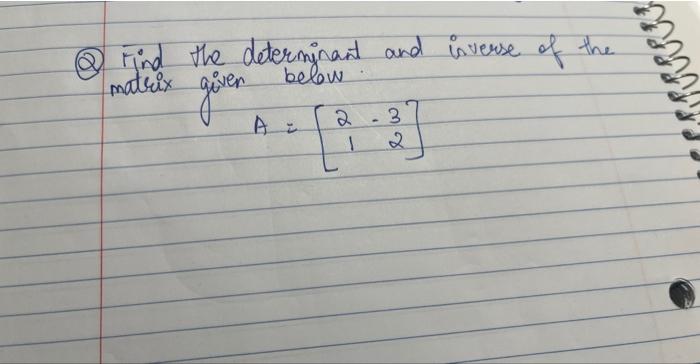 Q Find the determinant and inverse of the
matrix given below.
A = [2 -3
1 2]